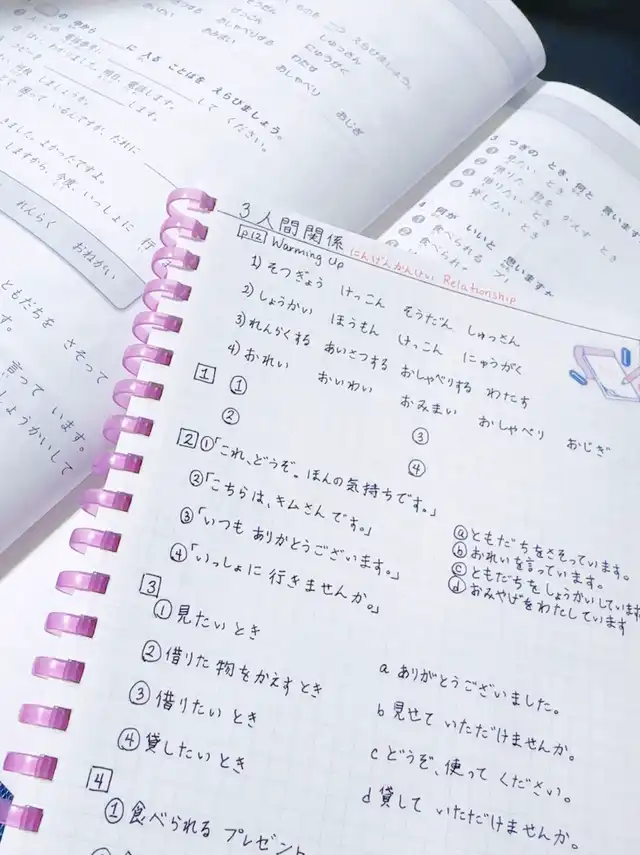 の中から＿＿に 入る ことばを えらびましょう。
してください。
します。
しゅっさん
にゅうがく
わたす
おしゃべり
おじぎ
おみまい
よかったですよ。
いっしょに 行
れんらく おねがい
ともだちを さそって
言って います。
しょうかいして
つぎの とき、何と 言います
見たい とき
借りた 物を かえす とき
借りたい とき
貸したい とき
4 何が いいと 思いますか
食べられる プ
3 人間関係
p12 Warming Up にんげんかんけい Relationship
1) そつぎょう けっこん そうだん しゅっさん
2) しょうかい ほうもん けっこん にゅうがく
3) れんらくする あいさつする おしゃべりする わたす
4) おれい おいわい おみまい おしゃべり おじぎ
1 ①
②
③
④
2 ①「これ、どうぞ。ほんの気持ちです。」
②「こちらは、キムさんです。」
③「いつも ありがとうございます。」
④「いっしょに 行きませんか。」
ⓐ ともだちをさそっています。
ⓑ おれいを言っています。
ⓒ ともだちを しょうかいしています
ⓓ おみやげをわたしています
3
① 見たい とき
② 借りた 物を かえす とき
③ 借りたい とき
④ 貸したい とき
a ありがとうございました。
b 見せて いただけませんか。
c どうぞ、使って ください。
d 貸して いただけませんか。
4
① 食べられる プレゼント